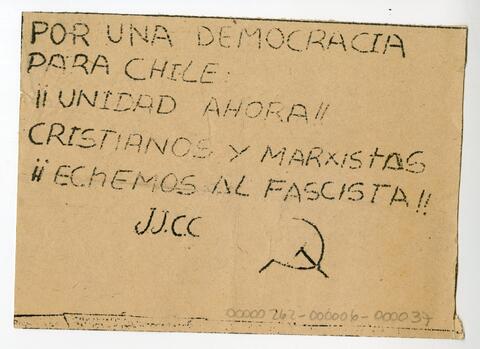 POR UNA DEMOCRACIA
PARA CHILE:
¡¡UNIDAD AHORA!!
CRISTIANOS Y MARXISTAS
¡¡ECHEMOS AL FASCISTA!!
JJ.CC
00000262-000006-000037